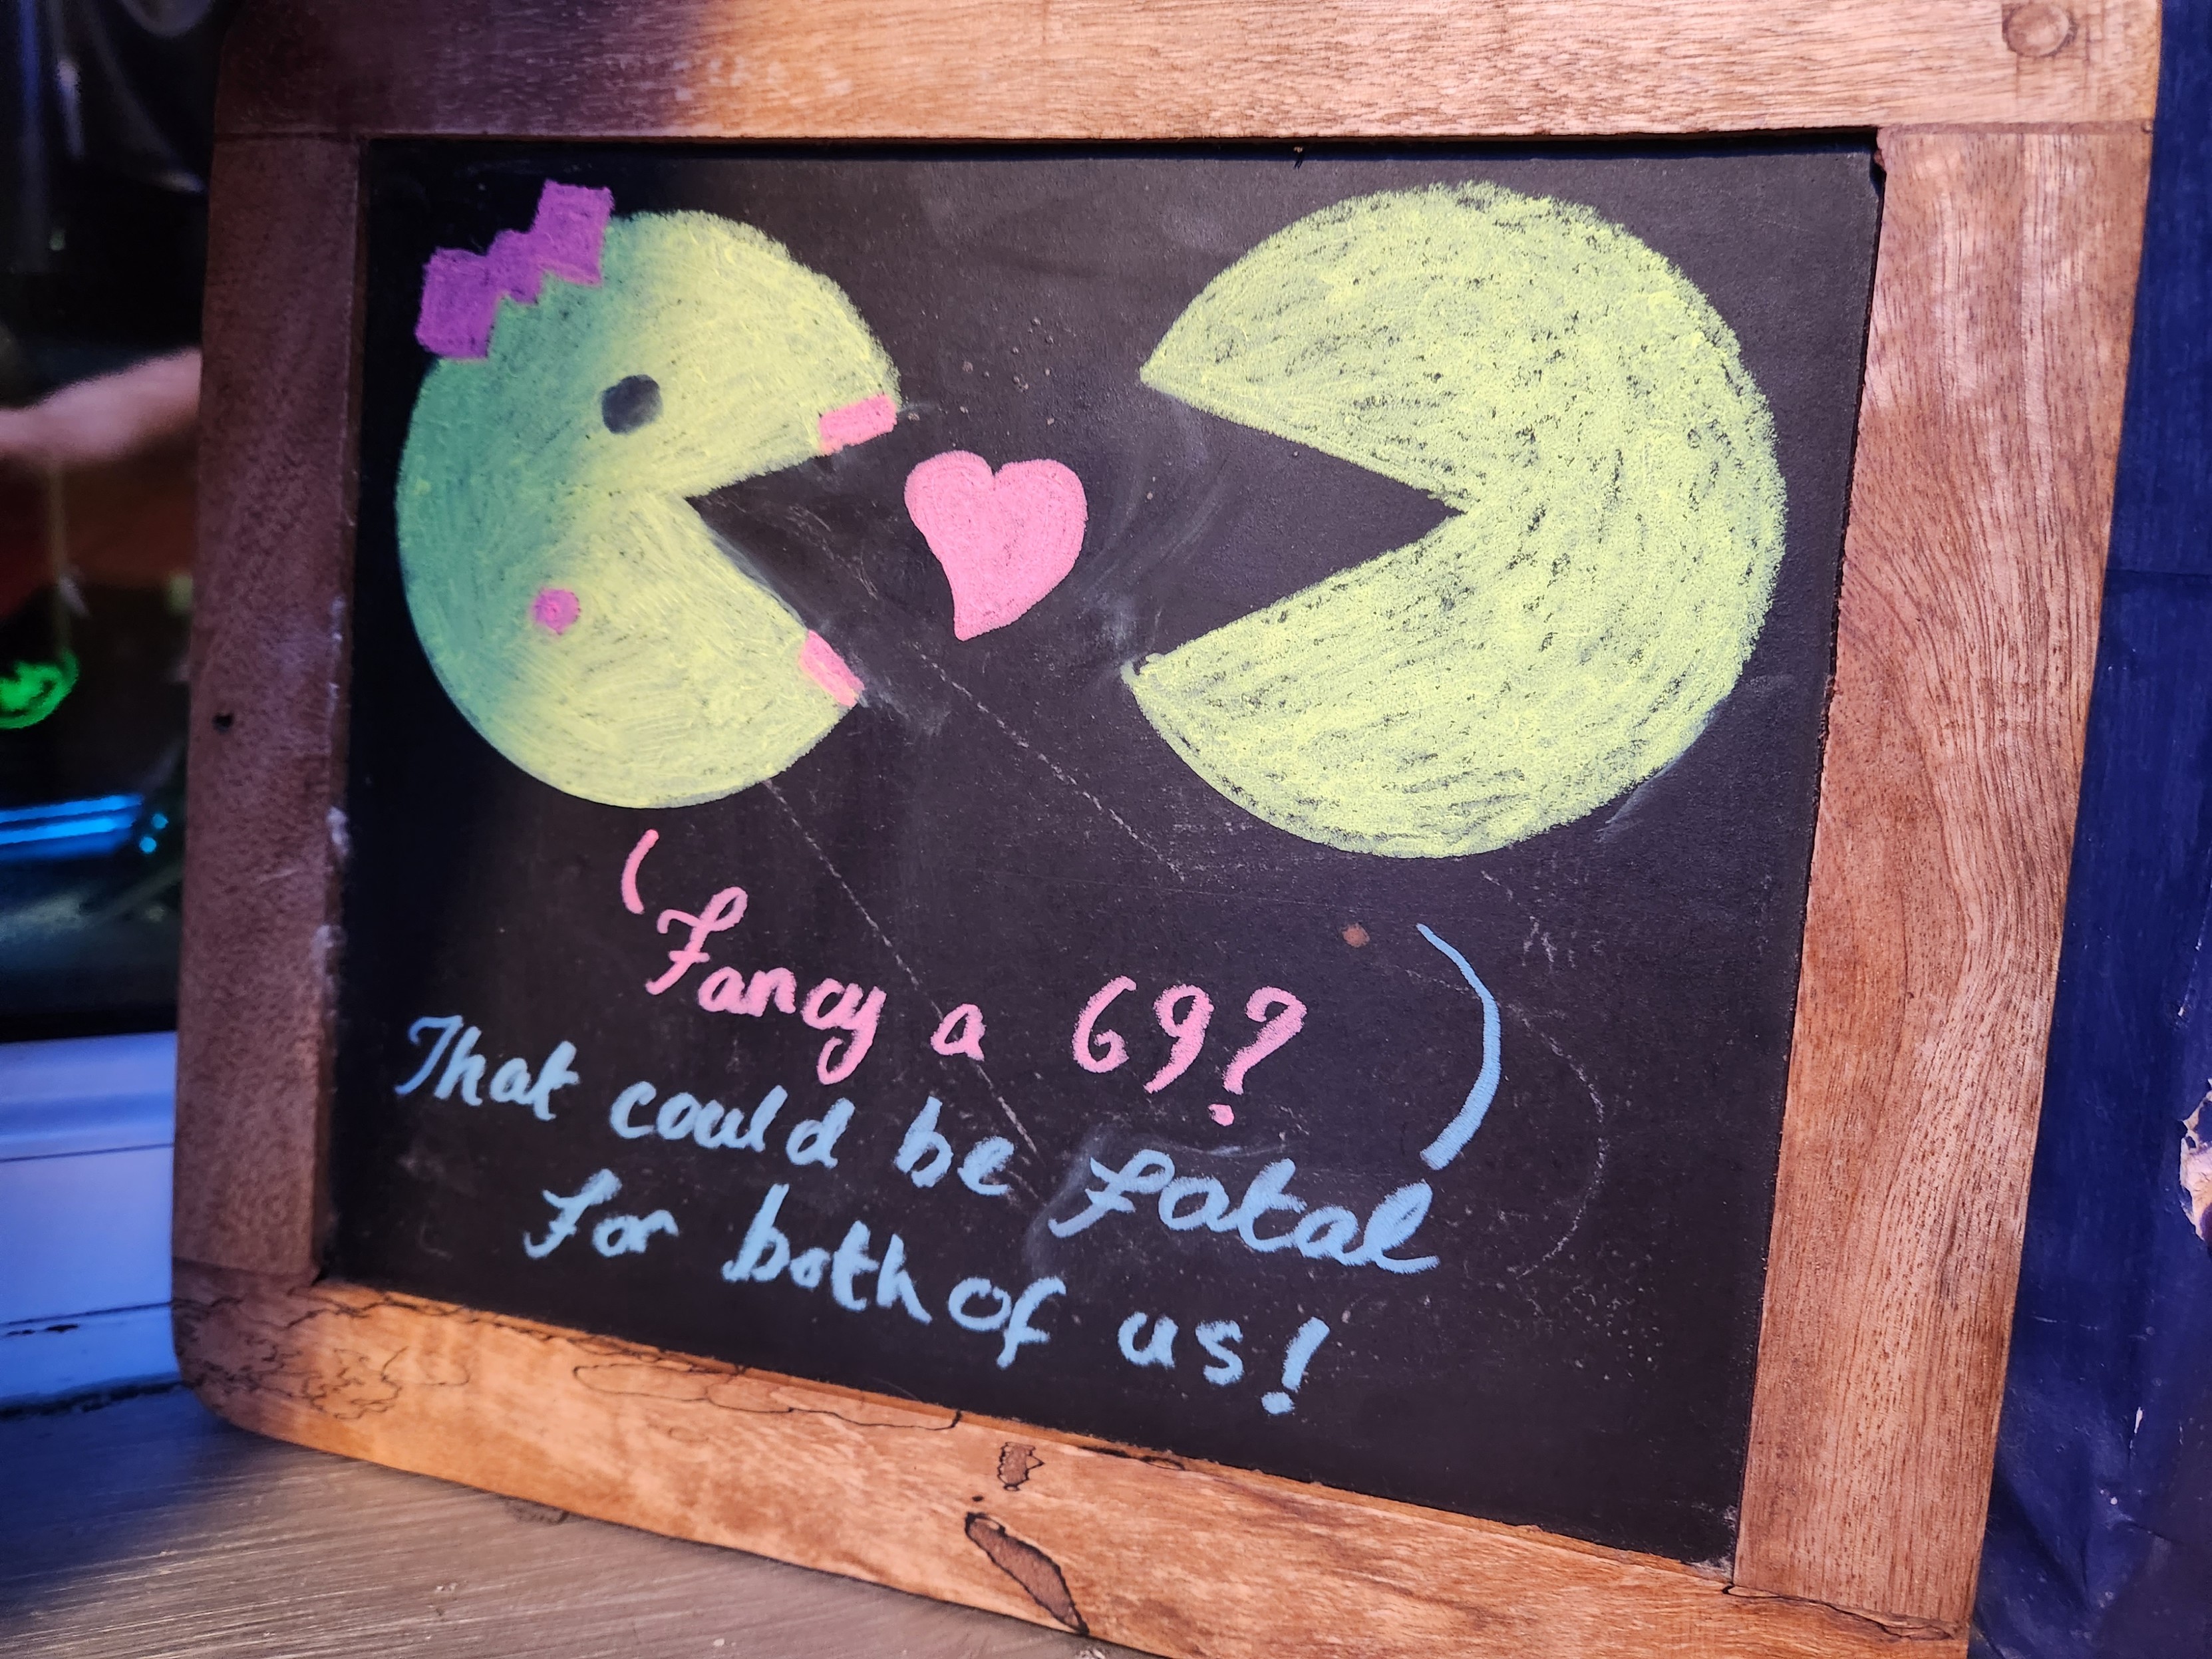 Fancy a 69?
That could be fatal
for both of us!